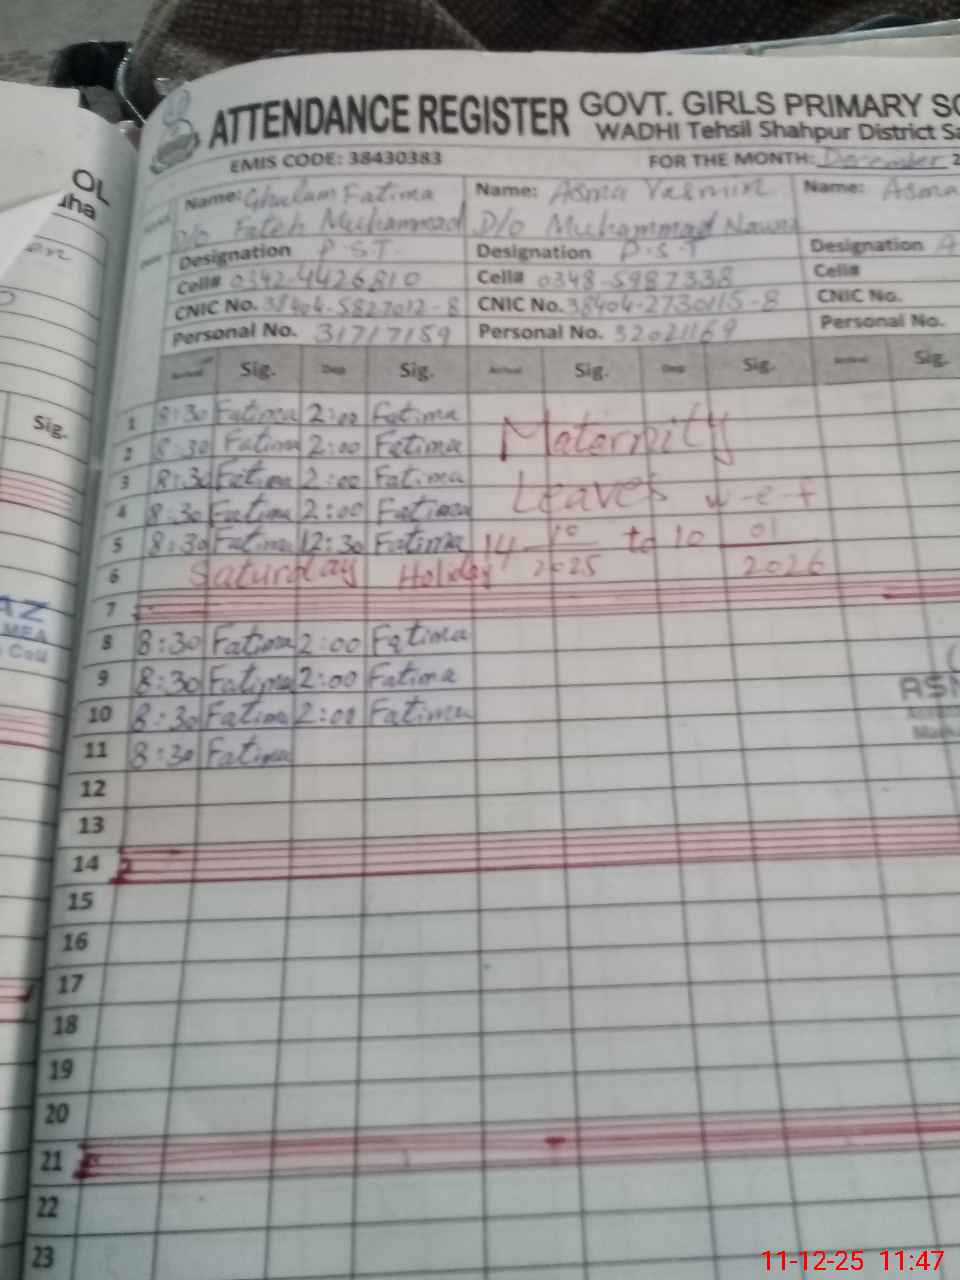 ATTENDANCE REGISTER GOVT. GIRLS PRIMARY
WADHI Tehsil Shahpur District
EMIS CODE: 38430383 FOR THE MONTH: December 2
Name: Ghulam Fatima Name: Asma Yasmin Name: Asma
D/o Fateh Muhammad D/o Muhammad Nawaz
Designation P.S.T. Designation P.S.T Designation A
Cell# 0342-4426810 Cell# 0348-5987338 Cell#
CNIC No. 38404-5827012-8 CNIC No. 38404-2730115-8 CNIC No.
Personal No. 31717159 Personal No. 32021169 Personal No.
Arrival Sig. Dep Sig. Arrival Sig. Dep Sig. Arrival Sig.
1 8:30 Fatima 2:00 Fatima Maternity
2 8:30 Fatima 2:00 Fatima
3 8:30 Fatima 2:00 Fatima Leaves w-e-f
4 8:30 Fatima 2:00 Fatima
5 8:30 Fatima 12:30 Fatima 14 10 to 10 01
6 Saturday Holiday 2025 2026
7
8 8:30 Fatima 2:00 Fatima
9 8:30 Fatima 2:00 Fatima
10 8:30 Fatima 2:00 Fatima
11 8:30 Fatima
12
13
14
15
16
17
18
19
20
21
22
23
OL
Sig.
AZ
MEA
11-12-25 11:47